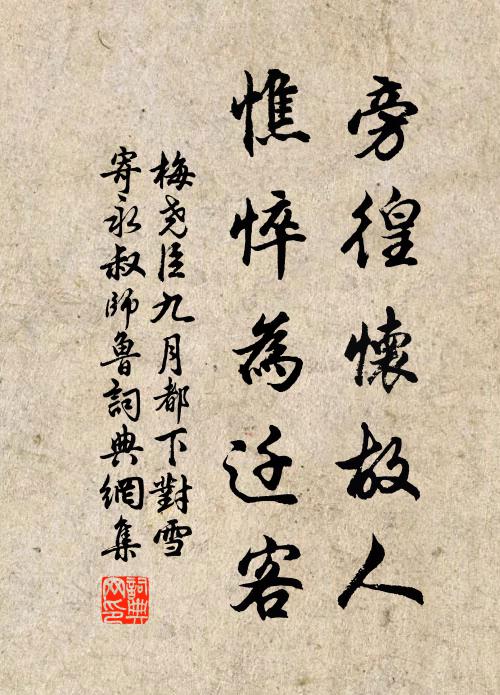 旁徨懷故人
憔悴為迁客
梅堯臣九月都下對雪
寄永叔師魯詞典網集
詞典網印